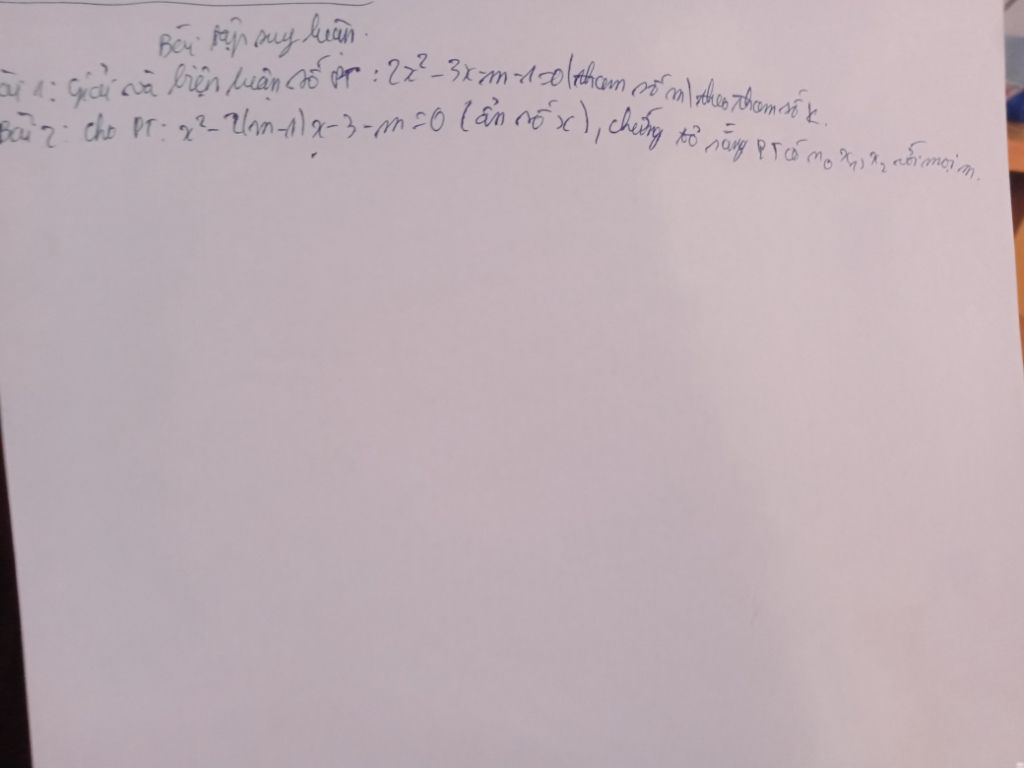 Bài tập suy luận.
ài 1: Giải và biện luận số PT : 2x² - 3x m - 1 = 0 (tham số m) theo tham số k.
Bài 2: cho PT: x² - 2(m-1)x - 3 - m = 0 (ẩn số x), chứng tỏ rằng PT có n₀ x₁, x₂ với mọi m.